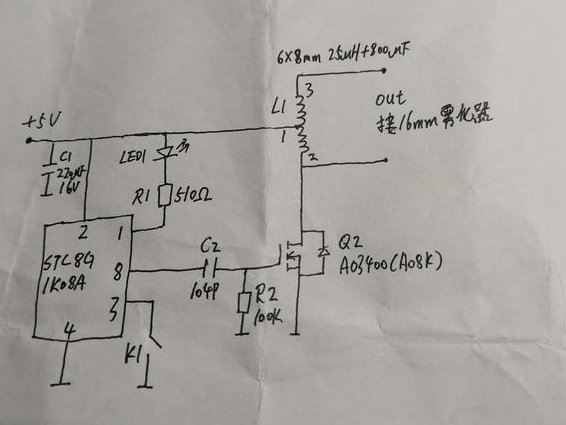 6×8mm 25uH+800uF
+5V
L1
3
1
2
out
接16mm雾化器
C1
220uF
16V
LED1
R1
510Ω
2
1
STC8G
1K08A
8
3
4
C2
104P
R2
100K
Q2
AO3400(AO8K)
K1